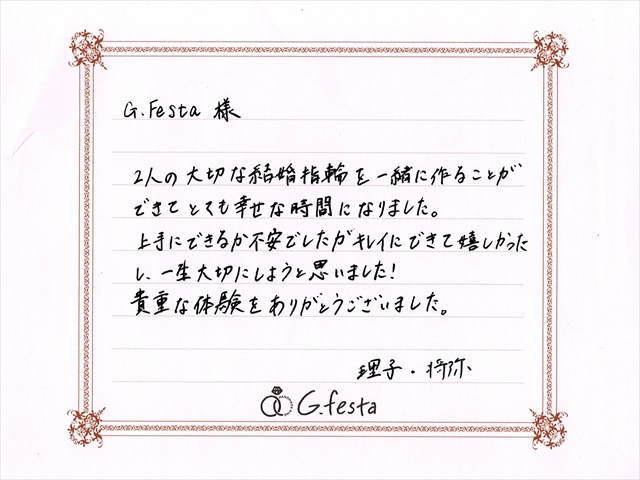 G.Festa 様
2人の大切な結婚指輪を一緒に作ることが
できてとても幸せな時間になりました。
上手にできるか不安でしたがキレイにできて嬉しかった
し、一生大切にしようと思いました!
貴重な体験をありがとうございました。
理子・将弥
G.festa